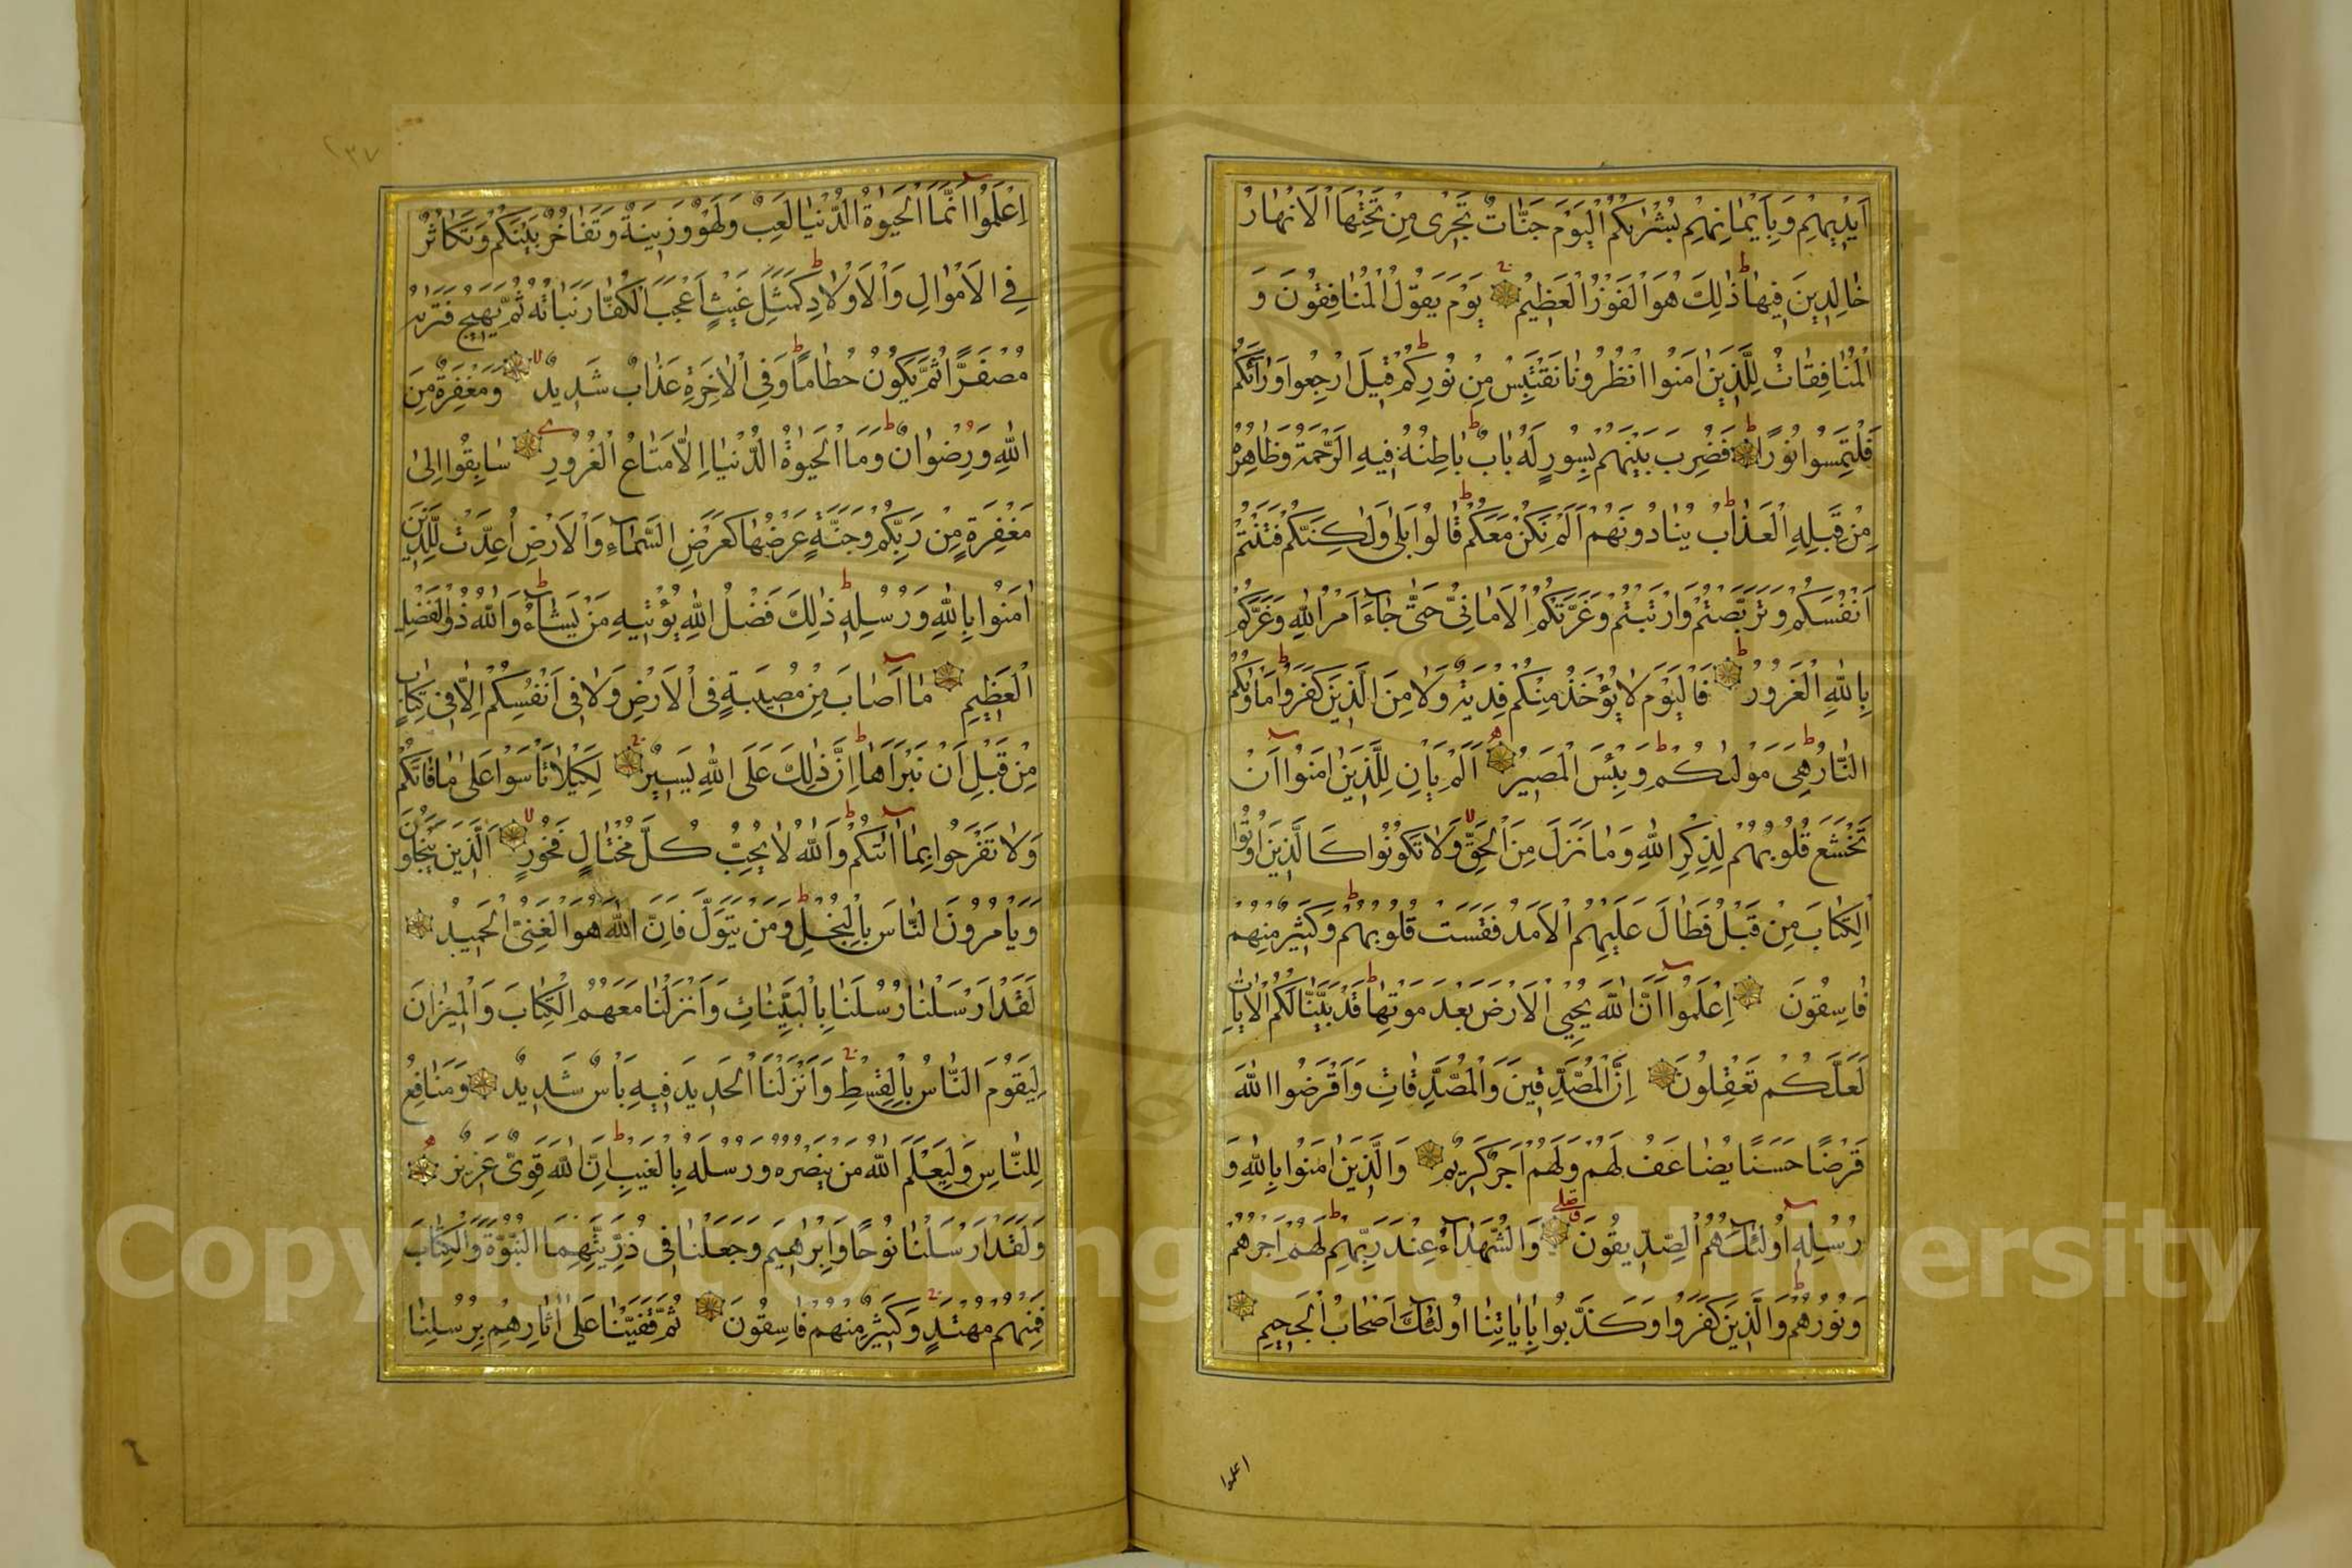 اَيْدِيهِمْ وَبِاَيْمَانِهِمْ بُشْرٰيكُمُ الْيَوْمَ جَنَّاتٌ تَجْرِى مِنْ تَحْتِهَا الْاَنْهَارُ
خَالِدِينَ فِيهَا ط ذٰلِكَ هُوَ الْفَوْزُ الْعَظِيمُ يَوْمَ يَقُولُ الْمُنَافِقُونَ وَ
الْمُنَافِقَاتُ لِلَّذِينَ اٰمَنُوا انْظُرُونَا نَقْتَبِسْ مِنْ نُورِكُمْ ط قِيلَ ارْجِعُوا وَرَاءَكُمْ
فَلْتَمِسُوا نُورًا ط فَضُرِبَ بَيْنَهُمْ بِسُورٍ لَهُ بَابٌ ط بَاطِنُهُ فِيهِ الرَّحْمَةُ وَظَاهِرُهُ
مِنْ قِبَلِهِ الْعَذَابُ ط يُنَادُونَهُمْ اَلَمْ نَكُنْ مَعَكُمْ ط قَالُوا بَلٰى وَلٰكِنَّكُمْ فَتَنْتُمْ
اَنْفُسَكُمْ وَتَرَبَّصْتُمْ وَارْتَبْتُمْ وَغَرَّتْكُمُ الْاَمَانِىُّ حَتّٰى جَاءَ اَمْرُ اللهِ وَغَرَّكُمْ
بِاللهِ الْغَرُورُ ط فَالْيَوْمَ لَا يُؤْخَذُ مِنْكُمْ فِدْيَةٌ وَلَا مِنَ الَّذِينَ كَفَرُوا ط مَاْوٰيكُمُ
النَّارُ ط هِىَ مَوْلٰيكُمْ ط وَبِئْسَ الْمَصِيرُ اَلَمْ يَاْنِ لِلَّذِينَ اٰمَنُوا اَنْ
تَخْشَعَ قُلُوبُهُمْ لِذِكْرِ اللهِ وَمَا نَزَلَ مِنَ الْحَقِّ لا وَلَا تَكُونُوا كَالَّذِينَ اُوتُوا
الْكِتَابَ مِنْ قَبْلُ فَطَالَ عَلَيْهِمُ الْاَمَدُ فَقَسَتْ قُلُوبُهُمْ ط وَكَثِيرٌ مِنْهُمْ
فَاسِقُونَ اِعْلَمُوا اَنَّ اللهَ يُحْيِى الْاَرْضَ بَعْدَ مَوْتِهَا ط قَدْ بَيَّنَّا لَكُمُ الْاٰيَاتِ
لَعَلَّكُمْ تَعْقِلُونَ اِنَّ الْمُصَّدِّقِينَ وَالْمُصَّدِّقَاتِ وَاَقْرَضُوا اللهَ
قَرْضًا حَسَنًا يُضَاعَفُ لَهُمْ وَلَهُمْ اَجْرٌ كَرِيمٌ وَالَّذِينَ اٰمَنُوا بِاللهِ وَ
رُسُلِهِ اُولٰئِكَ هُمُ الصِّدِّيقُونَ وَالشُّهَدَاءُ عِنْدَ رَبِّهِمْ ط لَهُمْ اَجْرُهُمْ
وَنُورُهُمْ ط وَالَّذِينَ كَفَرُوا وَكَذَّبُوا بِاٰيَاتِنَا اُولٰئِكَ اَصْحَابُ الْجَحِيمِ
اعلموا
٢٣٧
اِعْلَمُوا اَنَّمَا الْحَيٰوةُ الدُّنْيَا لَعِبٌ وَلَهْوٌ وَزِينَةٌ وَتَفَاخُرٌ بَيْنَكُمْ وَتَكَاثُرٌ
فِى الْاَمْوَالِ وَالْاَوْلَادِ ط كَمَثَلِ غَيْثٍ اَعْجَبَ الْكُفَّارَ نَبَاتُهُ ثُمَّ يَهِيجُ فَتَرٰيهُ
مُصْفَرًّا ثُمَّ يَكُونُ حُطَامًا ط وَفِى الْاٰخِرَةِ عَذَابٌ شَدِيدٌ لا وَمَغْفِرَةٌ مِنَ
اللهِ وَرِضْوَانٌ ط وَمَا الْحَيٰوةُ الدُّنْيَا اِلَّا مَتَاعُ الْغُرُورِ سَابِقُوا اِلٰى
مَغْفِرَةٍ مِنْ رَبِّكُمْ وَجَنَّةٍ عَرْضُهَا كَعَرْضِ السَّمَاءِ وَالْاَرْضِ اُعِدَّتْ لِلَّذِينَ
اٰمَنُوا بِاللهِ وَرُسُلِهِ ط ذٰلِكَ فَضْلُ اللهِ يُؤْتِيهِ مَنْ يَشَاءُ ط وَاللهُ ذُو الْفَضْلِ
الْعَظِيمِ مَا اَصَابَ مِنْ مُصِيبَةٍ فِى الْاَرْضِ وَلَا فِى اَنْفُسِكُمْ اِلَّا فِى كِتَابٍ
مِنْ قَبْلِ اَنْ نَبْرَاَهَا ط اِنَّ ذٰلِكَ عَلَى اللهِ يَسِيرٌ لِكَيْلَا تَاْسَوْا عَلٰى مَا فَاتَكُمْ
وَلَا تَفْرَحُوا بِمَا اٰتٰيكُمْ ط وَاللهُ لَا يُحِبُّ كُلَّ مُخْتَالٍ فَخُورٍ لا اَلَّذِينَ يَبْخَلُونَ
وَيَاْمُرُونَ النَّاسَ بِالْبُخْلِ ط وَمَنْ يَتَوَلَّ فَاِنَّ اللهَ هُوَ الْغَنِىُّ الْحَمِيدُ
لَقَدْ اَرْسَلْنَا رُسُلَنَا بِالْبَيِّنَاتِ وَاَنْزَلْنَا مَعَهُمُ الْكِتَابَ وَالْمِيزَانَ
لِيَقُومَ النَّاسُ بِالْقِسْطِ وَاَنْزَلْنَا الْحَدِيدَ فِيهِ بَاْسٌ شَدِيدٌ وَمَنَافِعُ
لِلنَّاسِ وَلِيَعْلَمَ اللهُ مَنْ يَنْصُرُهُ وَرُسُلَهُ بِالْغَيْبِ ط اِنَّ اللهَ قَوِىٌّ عَزِيزٌ
وَلَقَدْ اَرْسَلْنَا نُوحًا وَاِبْرٰهِيمَ وَجَعَلْنَا فِى ذُرِّيَّتِهِمَا النُّبُوَّةَ وَالْكِتَابَ
فَمِنْهُمْ مُهْتَدٍ وَكَثِيرٌ مِنْهُمْ فَاسِقُونَ ثُمَّ قَفَّيْنَا عَلٰى اٰثَارِهِمْ بِرُسُلِنَا
Copyright © King Saud University